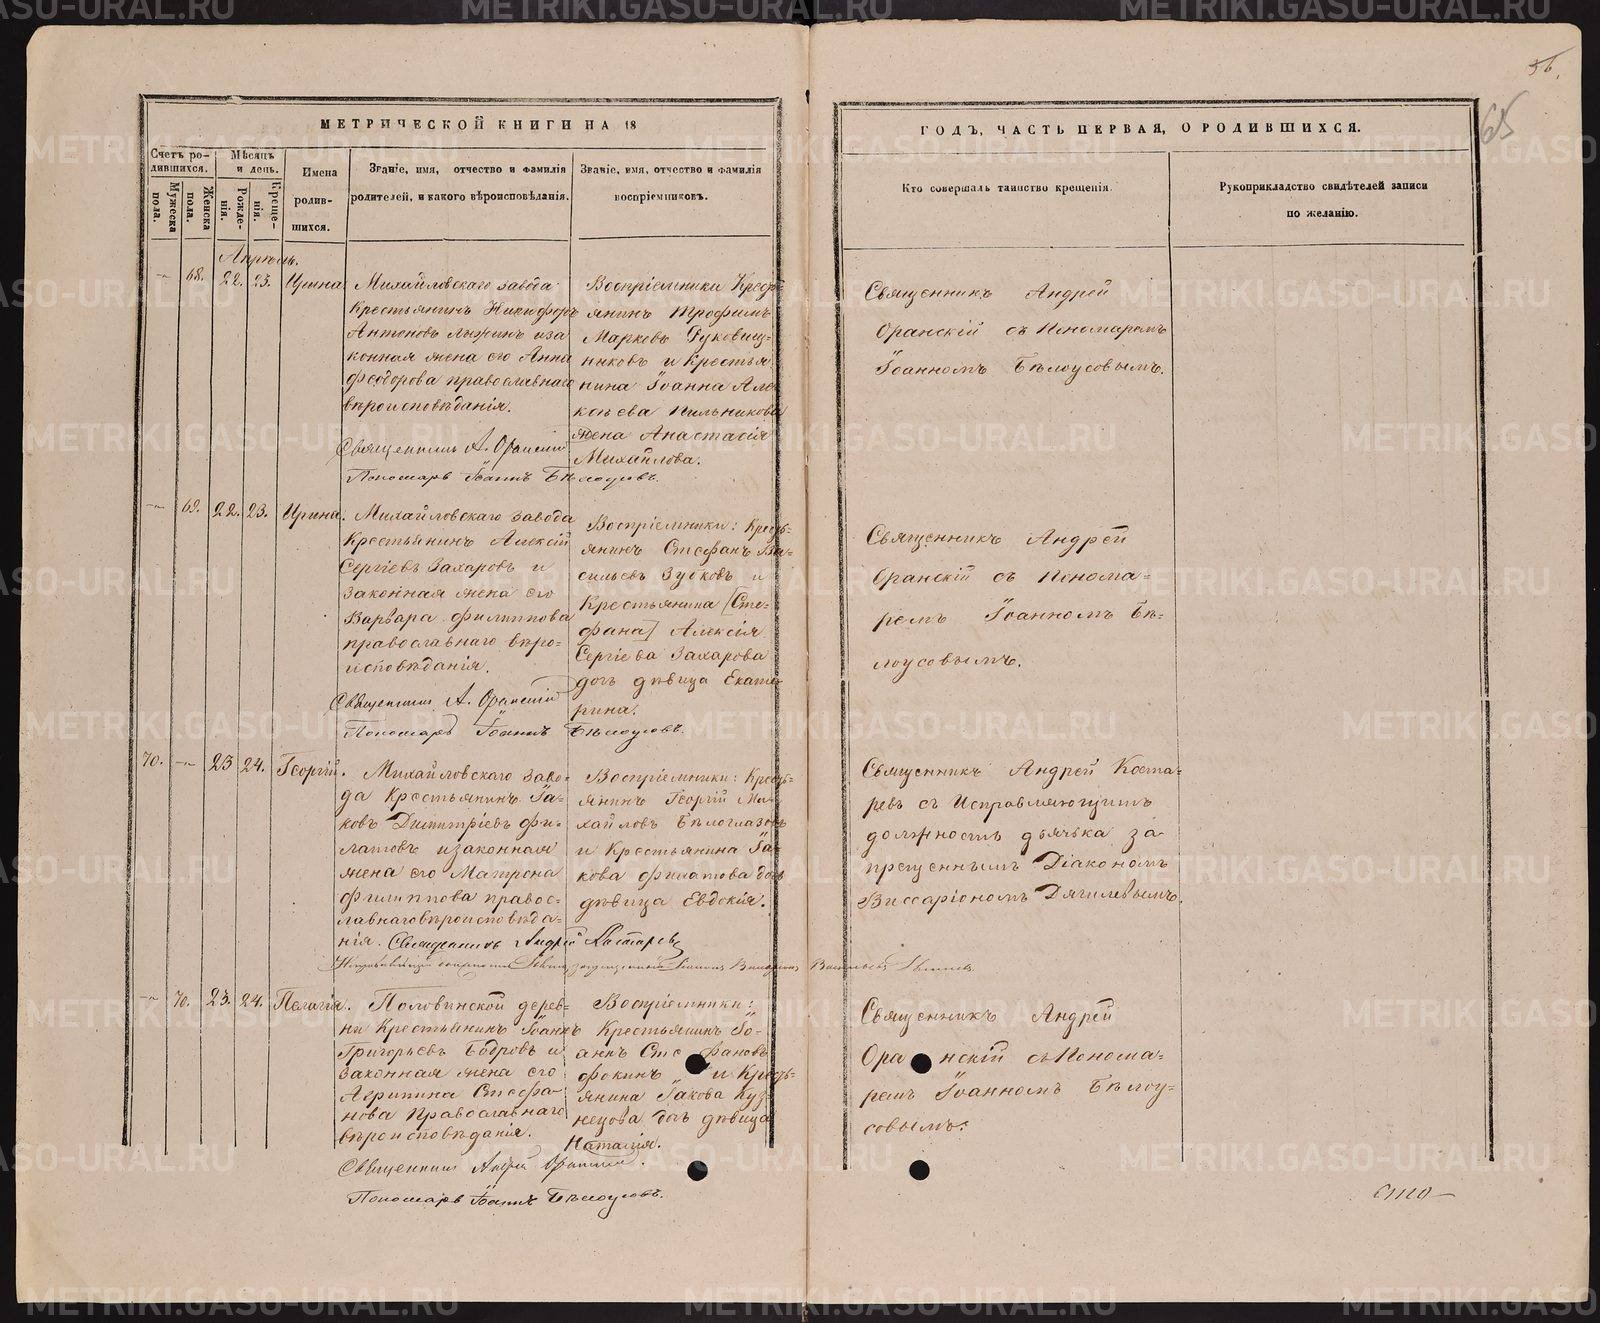 56.
65
МЕТРИЧЕСКОЙ КНИГИ НА 18
Счетъ ро-
дившихся.
Мужеска
пола.
Женска
пола.
Мѣсяцъ
и день.
Рожде-
нія.
Креще-
нія.
Имена
родив-
шихся.
Званіе, имя, отчество и фамилія
родителей, и какого вѣроисповѣданія.
Званіе, имя, отчество и фамилія
воспріемниковъ.
ГОДЪ, ЧАСТЬ ПЕРВАЯ, О РОДИВШИХСЯ.
Кто совершалъ таинство крещенія.
Рукоприкладство свидѣтелей записи
по желанію.
Апрѣль.
68. 22. 23. Ирина
Михайловскаго завода
Крестьянинъ Никифоръ
Антоновъ и за
конная жена его Анна
Феодорова православнаго
вѣроисповѣданія.
Священникъ А. Оранскій
Пономарь Іоаннъ Бѣлоусовъ.
Воспріемники Кресть
янинъ Трофимъ
Марковъ
никовъ и Крестья
нина Іоанна Але
ксѣева Пильникова
жена Анастасія
Михайлова.
Священникъ Андрей
Оранскій съ Пономаремъ
Іоанномъ Бѣлоусовымъ.
69. 22. 23. Ирина.
Михайловскаго завода
Крестьянинъ Алексій
Сергіевъ Захаровъ и
законная жена его
Варвара Филиппова
православнаго вѣро-
исповѣданія.
Священникъ А. Оранскій
Пономарь Іоаннъ Бѣлоусовъ.
Воспріемники: Кресть-
янинъ Стефанъ Ва-
сильевъ Зубковъ и
Крестьянина [Сте-
фана] Алексія
Сергіева Захарова
дочь дѣвица Екате-
рина.
Священникъ Андрей
Оранскій съ Понома-
ремъ Іоанномъ Бѣ-
лоусовымъ.
70. 23 24. Георгій.
Михайловскаго заво-
да Крестьянинъ Іа-
ковъ Димитріевъ Фи-
латовъ и законная
жена его Матрона
Филиппова правос-
лавнаго вѣроисповѣда-
нія. Священникъ Андрей Костаревъ
Воспріемники: Кресть-
янинъ Георгій Ми-
хайловъ Бѣлоглазовъ
и Крестьянина Іа-
кова Филатова дочь
дѣвица Евдокія.
Священникъ Андрей Коста-
ревъ съ Исправляющимъ
должность дьячка за
прещеннымъ Діакономъ
Виссаріономъ Дягилевымъ.
70. 23. 24. Пелагія.
Половинской дерев-
ни Крестьянинъ Іоаннъ
Григорьевъ Бодровъ и
законная жена его
Агрипина Стефа-
нова Православнаго
вѣроисповѣданія.
Священникъ Андрей Оранскій.
Пономарь Іоаннъ Бѣлоусовъ.
Воспріемники:
Крестьянинъ Іо-
аннъ Стефановъ
Фокинъ и Кресть-
янина Іакова Куз-
нецова дочь дѣвица
Наталія.
Священникъ Андрей
Оранскій съ Понома-
ремъ Іоанномъ Бѣлоу-
совымъ.
METRIKI.GASO-URAL.RU